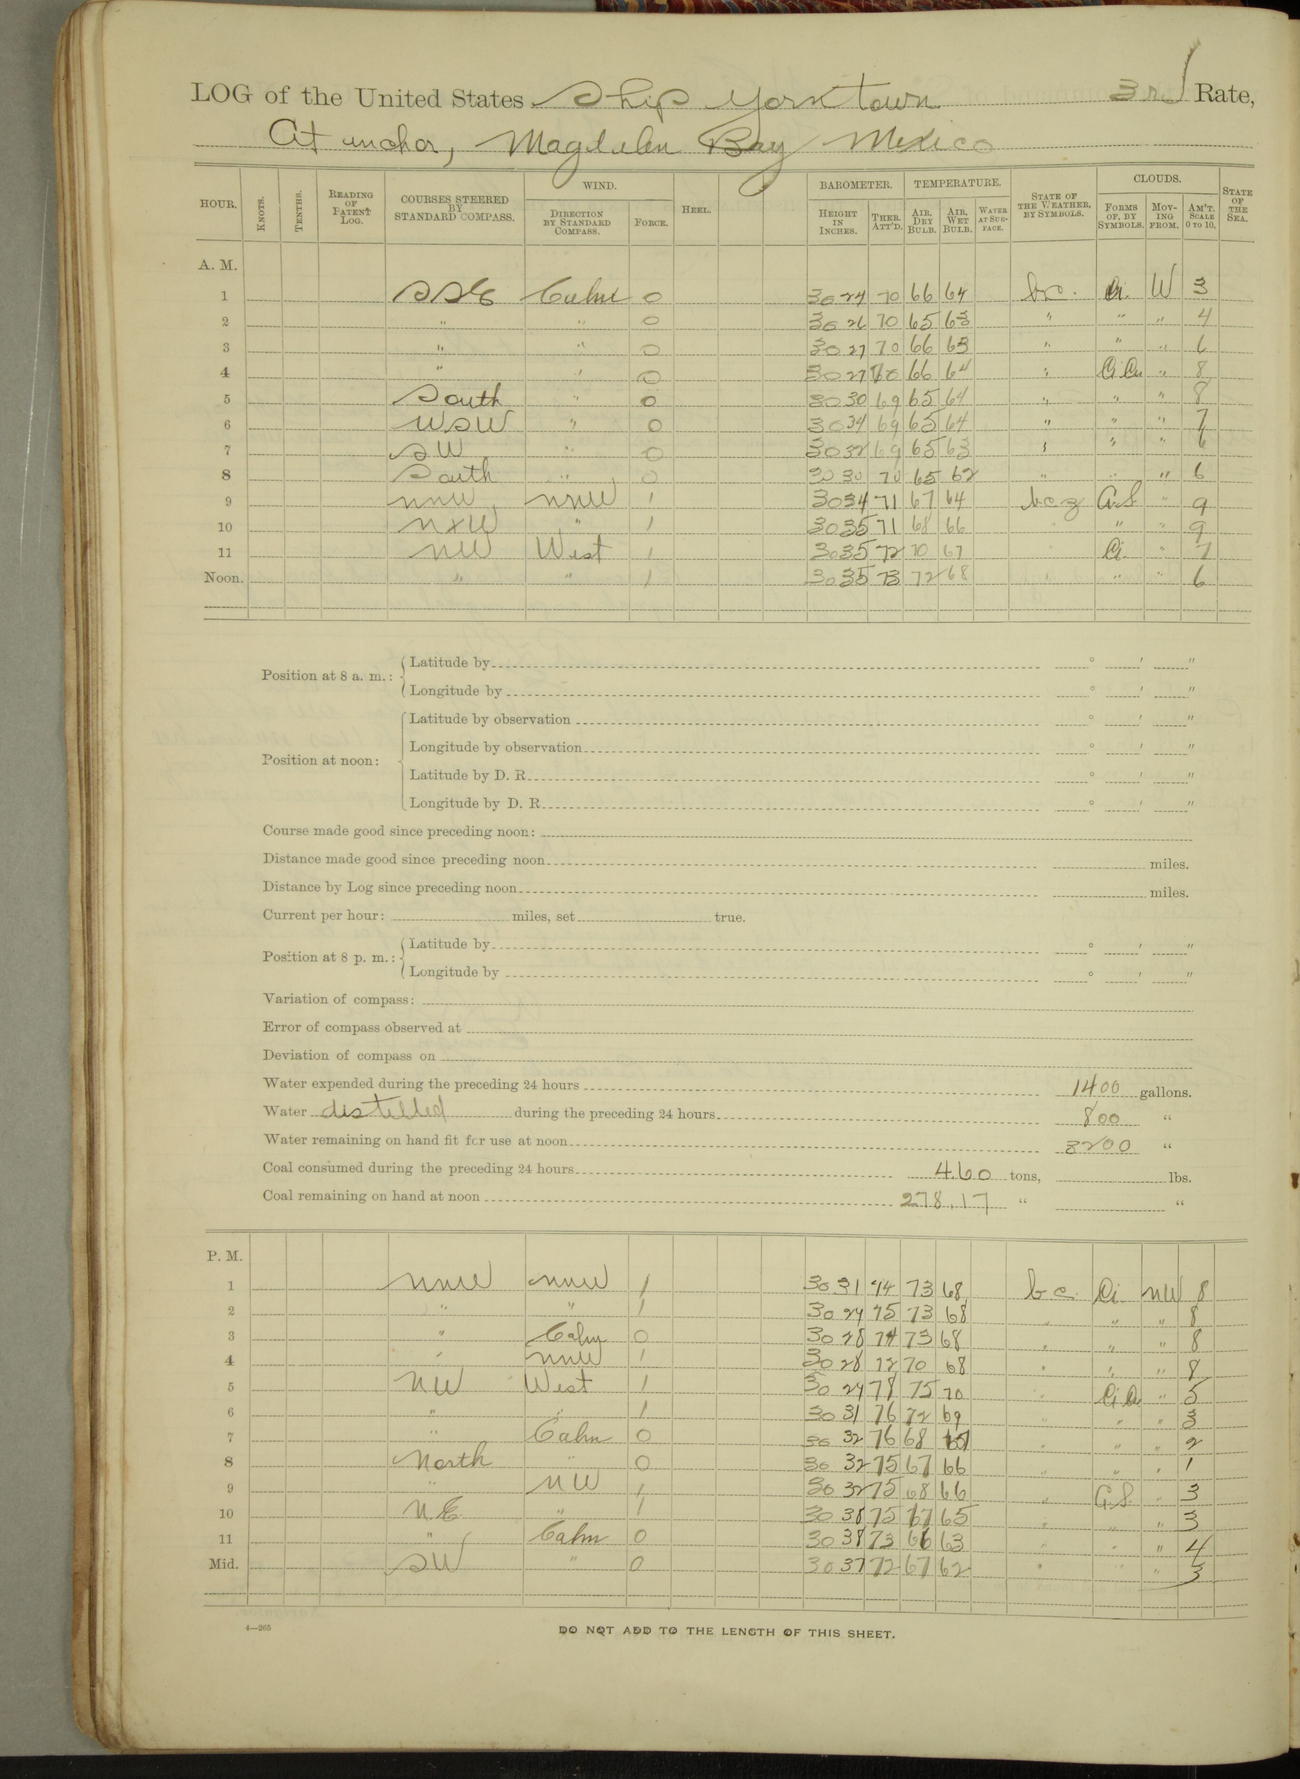 LOG of the United States Ship Yorktown 3rd Rate,
At anchor, Magdalen Bay Mexico
HOUR. KNOTS. TENTHS. READING OF PATENT LOG. COURSES STEERED BY STANDARD COMPASS. WIND. DIRECTION BY STANDARD COMPASS. FORCE. HEEL. BAROMETER. HEIGHT IN INCHES. THER. ATT'D. TEMPERATURE. AIR, DRY BULB. AIR, WET BULB. WATER AT SURFACE. STATE OF THE WEATHER, BY SYMBOLS. CLOUDS. FORMS OF, BY SYMBOLS. MOVING FROM. AM'T. SCALE 0 TO 10. STATE OF THE SEA.
A. M.
1 SSE Calm 0 30 24 70 66 64 bc. Ci. W 3
2 " " 0 30 26 70 65 63 " " " 4
3 " " 0 30 27 70 66 63 " " " 6
4 " " 0 30 27 70 66 64 " Ci Cu " 8
5 South " 0 30 30 69 65 64 " " " 8
6 WSW " 0 30 34 69 65 64 " " " 7
7 SW " 0 30 32 69 65 63 " " " 6
8 South " 0 30 30 70 65 62 " " " 6
9 NNW NNW 1 30 34 71 67 64 bcz C.S. " 9
10 NxW " 1 30 35 71 68 66 " " 9
11 NW West 1 30 35 72 70 67 Ci. " 7
Noon. " " 1 30 35 73 72 68 " " 6
Position at 8 a. m.: Latitude by ° ′ ″
Longitude by ° ′ ″
Position at noon: Latitude by observation ° ′ ″
Longitude by observation ° ′ ″
Latitude by D. R. ° ′ ″
Longitude by D. R. ° ′ ″
Course made good since preceding noon:
Distance made good since preceding noon miles.
Distance by Log since preceding noon miles.
Current per hour: miles, set true.
Position at 8 p. m.: Latitude by ° ′ ″
Longitude by ° ′ ″
Variation of compass:
Error of compass observed at
Deviation of compass on
Water expended during the preceding 24 hours 1400 gallons.
Water distilled during the preceding 24 hours 800 "
Water remaining on hand fit for use at noon 3200 "
Coal consumed during the preceding 24 hours 4.60 tons, lbs.
Coal remaining on hand at noon 278.17 " "
P. M.
1 NNW NNW 1 30 31 74 73 68 bc. Ci. NW 8
2 " " 1 30 29 75 73 68 " " " 8
3 " Calm 0 30 28 74 73 68 " " " 8
4 " NNW 1 30 28 72 70 68 " " " 8
5 NW West 1 30 29 78 75 70 " Ci Cu " 5
6 " " 1 30 31 76 72 69 " " " 3
7 " Calm 0 30 32 76 68 " " " 2
8 North " 0 30 32 75 67 66 " " " 1
9 " NW 1 30 32 75 68 66 " C.S. " 3
10 N.E. " 1 30 38 75 67 65 " " " 3
11 " Calm 0 30 38 73 66 63 " " " 4
Mid. SW " 0 30 37 72 67 62 " " " 3
4—265
DO NOT ADD TO THE LENGTH OF THIS SHEET.